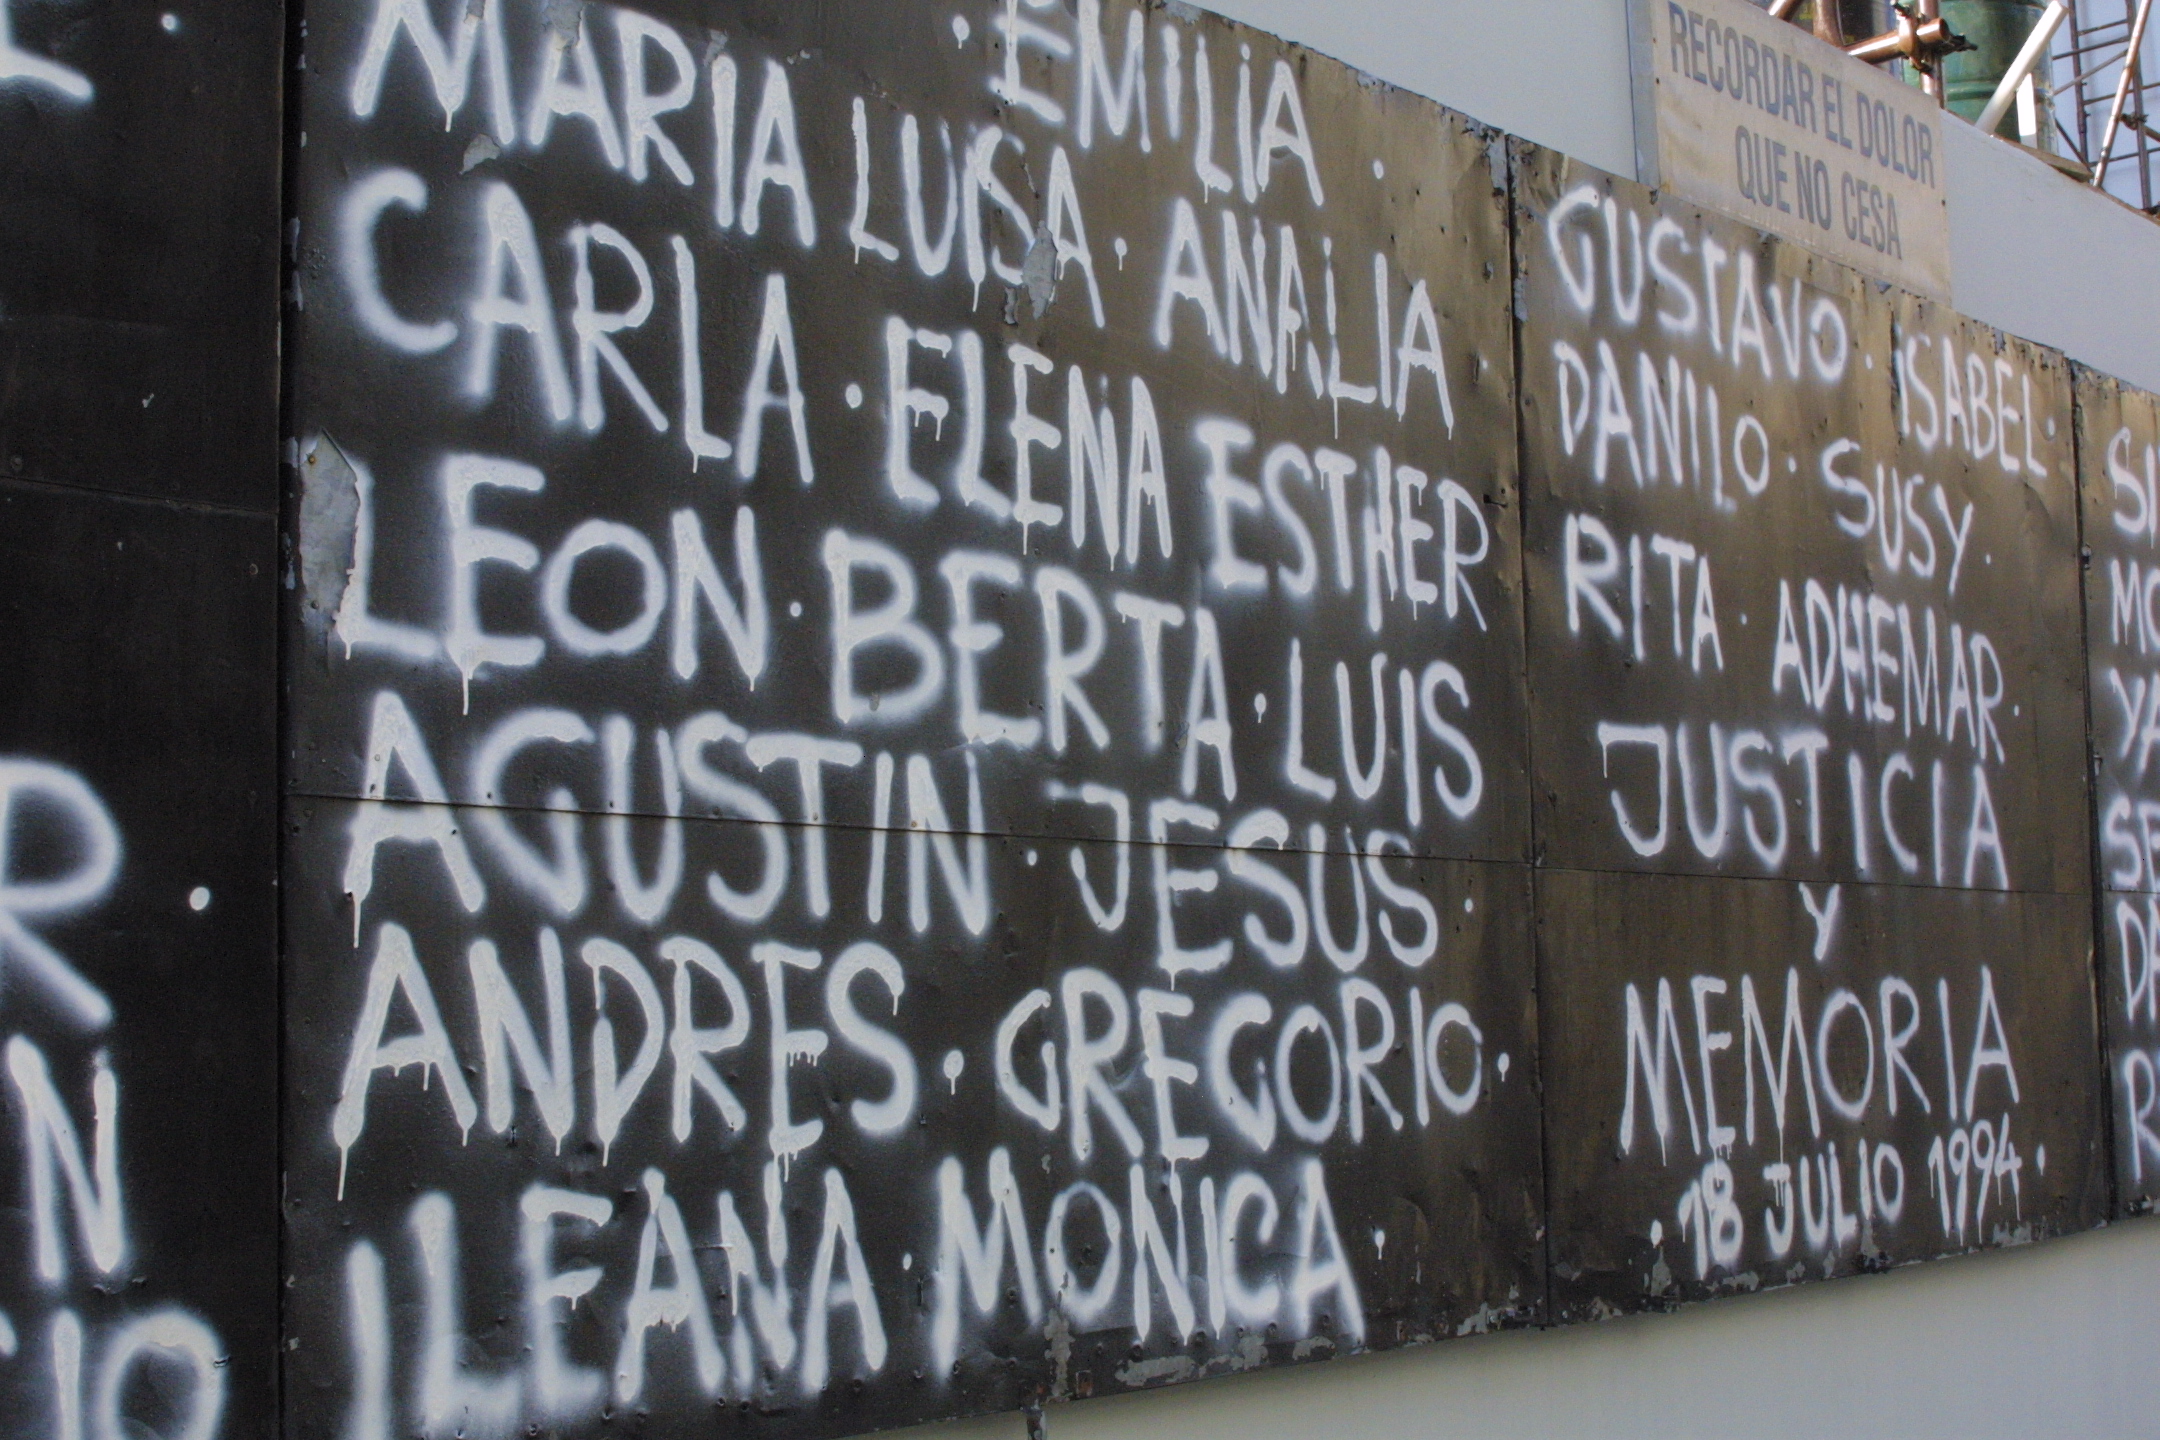 EMILIA.
MARIA LUISA. ANALIA.
CARLA. ELENA ESTHER
LEON. BERTA. LUIS
AGUSTIN. JESUS.
ANDRES. GREGORIO.
ILEANA. MONICA.
RECORDAR EL DOLOR
QUE NO CESA
GUSTAVO. ISABEL.
DANILO. SUSY.
RITA. ADHEMAR.
JUSTICIA
Y
MEMORIA
. 18 JULIO 1994.